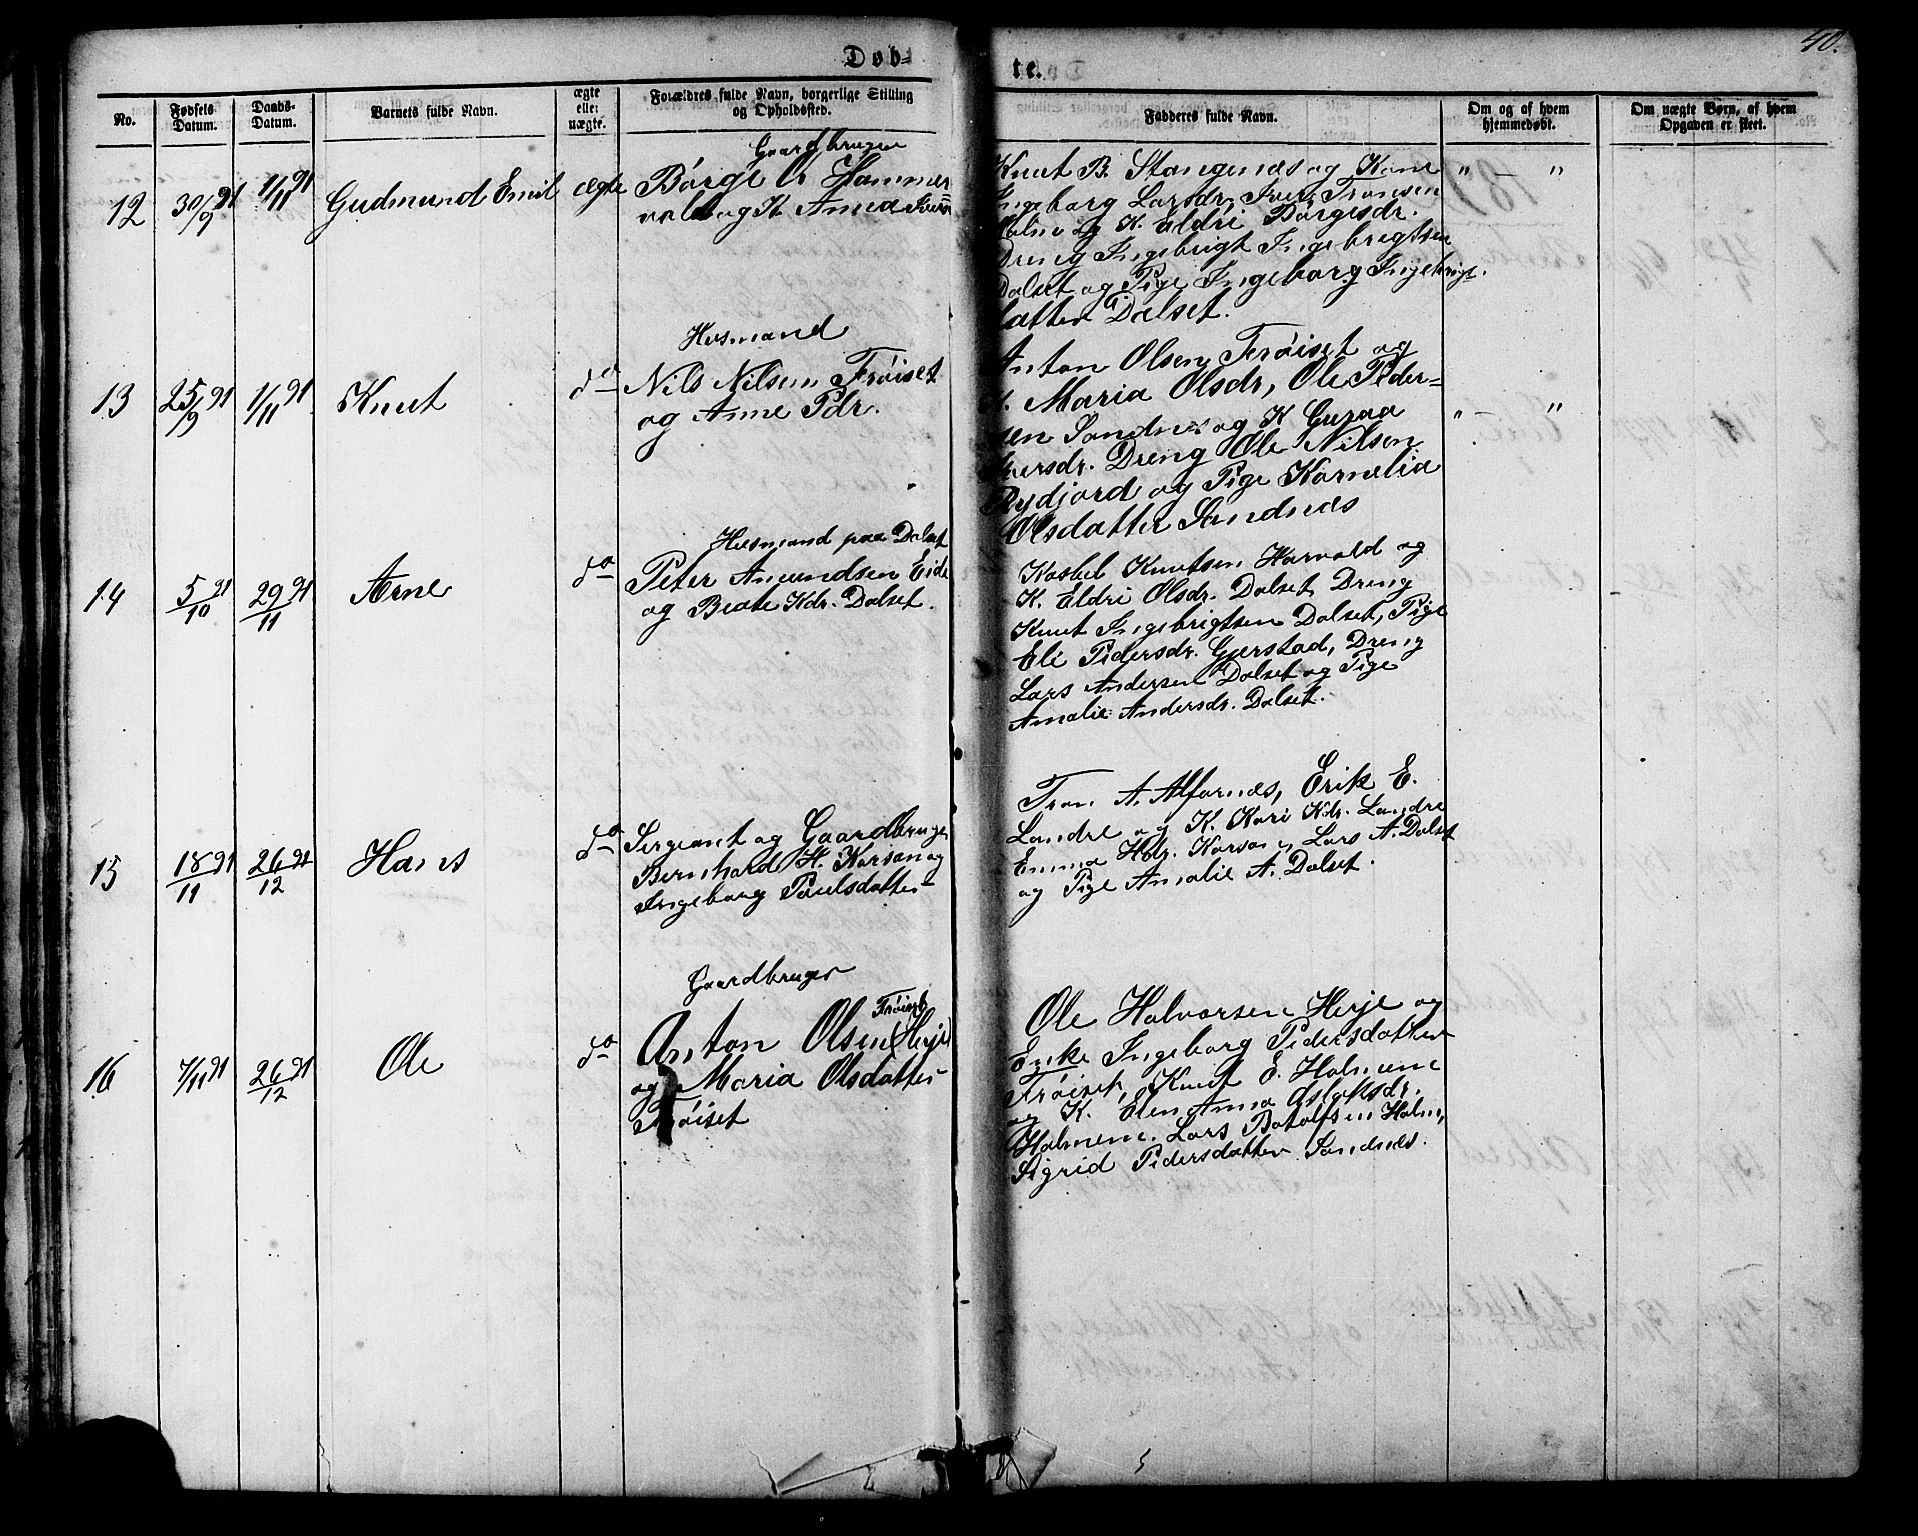 40.
Døb=
te.
No.
Fødsels
Datum.
Daabs-
Datum.
Barnets fulde Navn.
ægte
eller
uægte.
Forældres fulde Navn, borgerlige Stilling
og Opholdssted.
Fadderes fulde Navn.
Om og af hvem
hjemmedøbt.
Om uægte Børn, af hvem
Opgaven er skeet.
12
30/9 91
1/11 91
Gudmund Emil
ægte
Gaardbruger
Børge Hammer-
vold og K. Anna
Knut B. Stangenæs og Kone
Ingeborg Larsdr, Iver Tronsen
Holm og K. Eldri Børgesdr.
Dreng Ingebrigt Ingebrigtsen
Dalset og Pige Ingeborg Ingebrigt-
datter Dalset.
" — "
13
25/9 91
1/11 91
Knut
do
Husmand
Nils Nilsen Frøiset
og Anne Pdr.
Anton Olsen Frøiset og
K. Maria Olsdr, Ole Peder-
sen Sandnes og K Guraa
Iversdr. Dreng Ole Nilsen
Rydjord og Pige Kornelia
Olsdatter Sandnæs
" — "
14
5/10 91
29/11 91
Arne
do
Husmand paa Dalset
Peter Amundsen Eide
og Beate Kdr. Dalset.
Kosbel Knutsen Harvold og
K. Eldri Olsdr. Dalset, Dreng
Knut Ingebrigtsen Dalset, Pige
Eli Pedersdr. Gjerstad, Dreng
Lars Andersen Dalset og Pige
Amalie Andersdr. Dalset.
15
18/11 91
26/12 91
Hans
do
Sergeant og Gaardbruger
Bernhard H. Korsan og
Ingeborg Paulsdatter
Tron A. Alfarnæs, Erik E.
Landre og K. Kari Kdr. Landre
Emma Hdr. Korsan, Lars A. Dalset
og Pige Amalie A. Dalset.
16
7/11 91
26/12 91
Ole
do
Gaardbruger
Frøiset
Anton Olsen (Herje)
og Maria Olsdatter
Frøiset
Ole Halvorsen Herje og
Enke Ingeborg Pedersdatter
Frøiset, Knut E. Holmem
og K. Elen Anna Aslaksdr.
Holmem. Lars Botolfsen Holm,
Sigrid Pedersdatter Sandnæs.